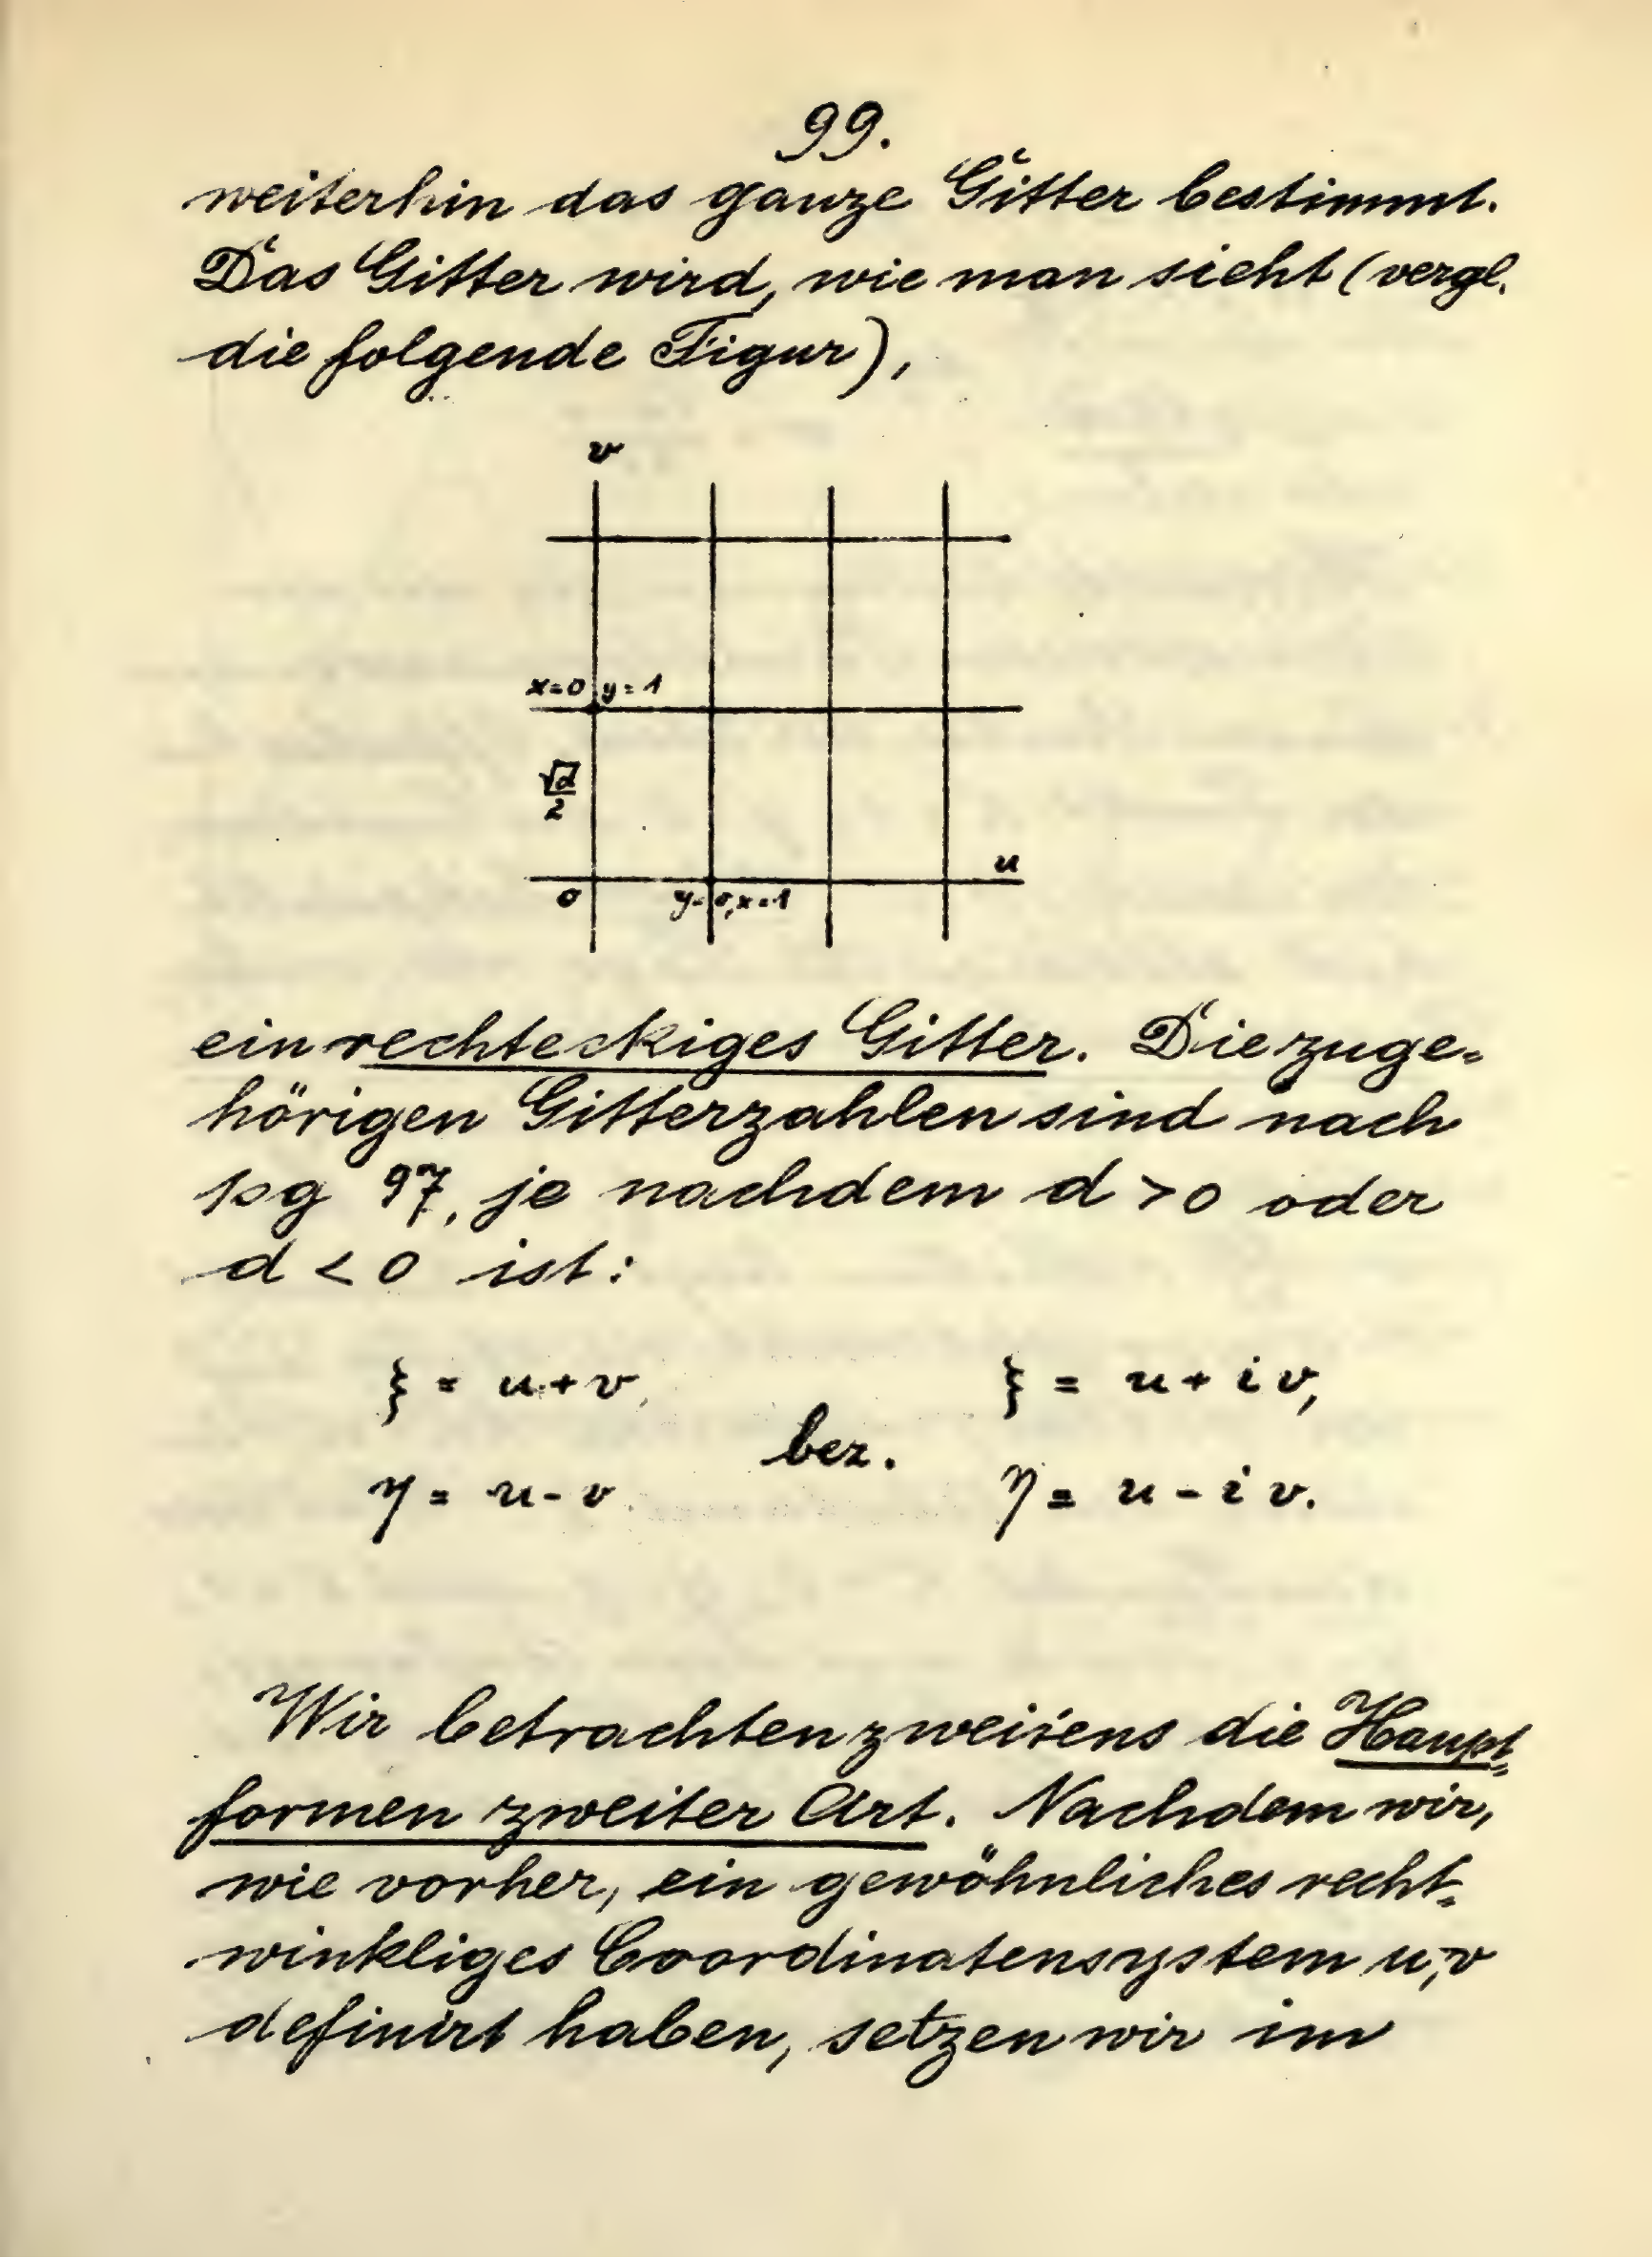 99.
weiterhin das ganze Gitter bestimmt.
Das Gitter wird, wie man sieht (vergl.
die folgende Figur),
v
x=0 y=1
√d/2
u
0 y=0, x=1
ein rechteckiges Gitter. Die zuge-
hörigen Gitterzahlen sind nach
pg 97, je nachdem d > 0 oder
d < 0 ist:
ξ = u + v, ξ = u + i v,
bez.
η = u - v η = u - i v.
Wir betrachten zweitens die Haupt-
formen zweiter Art. Nachdem wir,
wie vorher, ein gewöhnliches recht-
winkliges Coordinatensystem u, v
definirt haben, setzen wir im